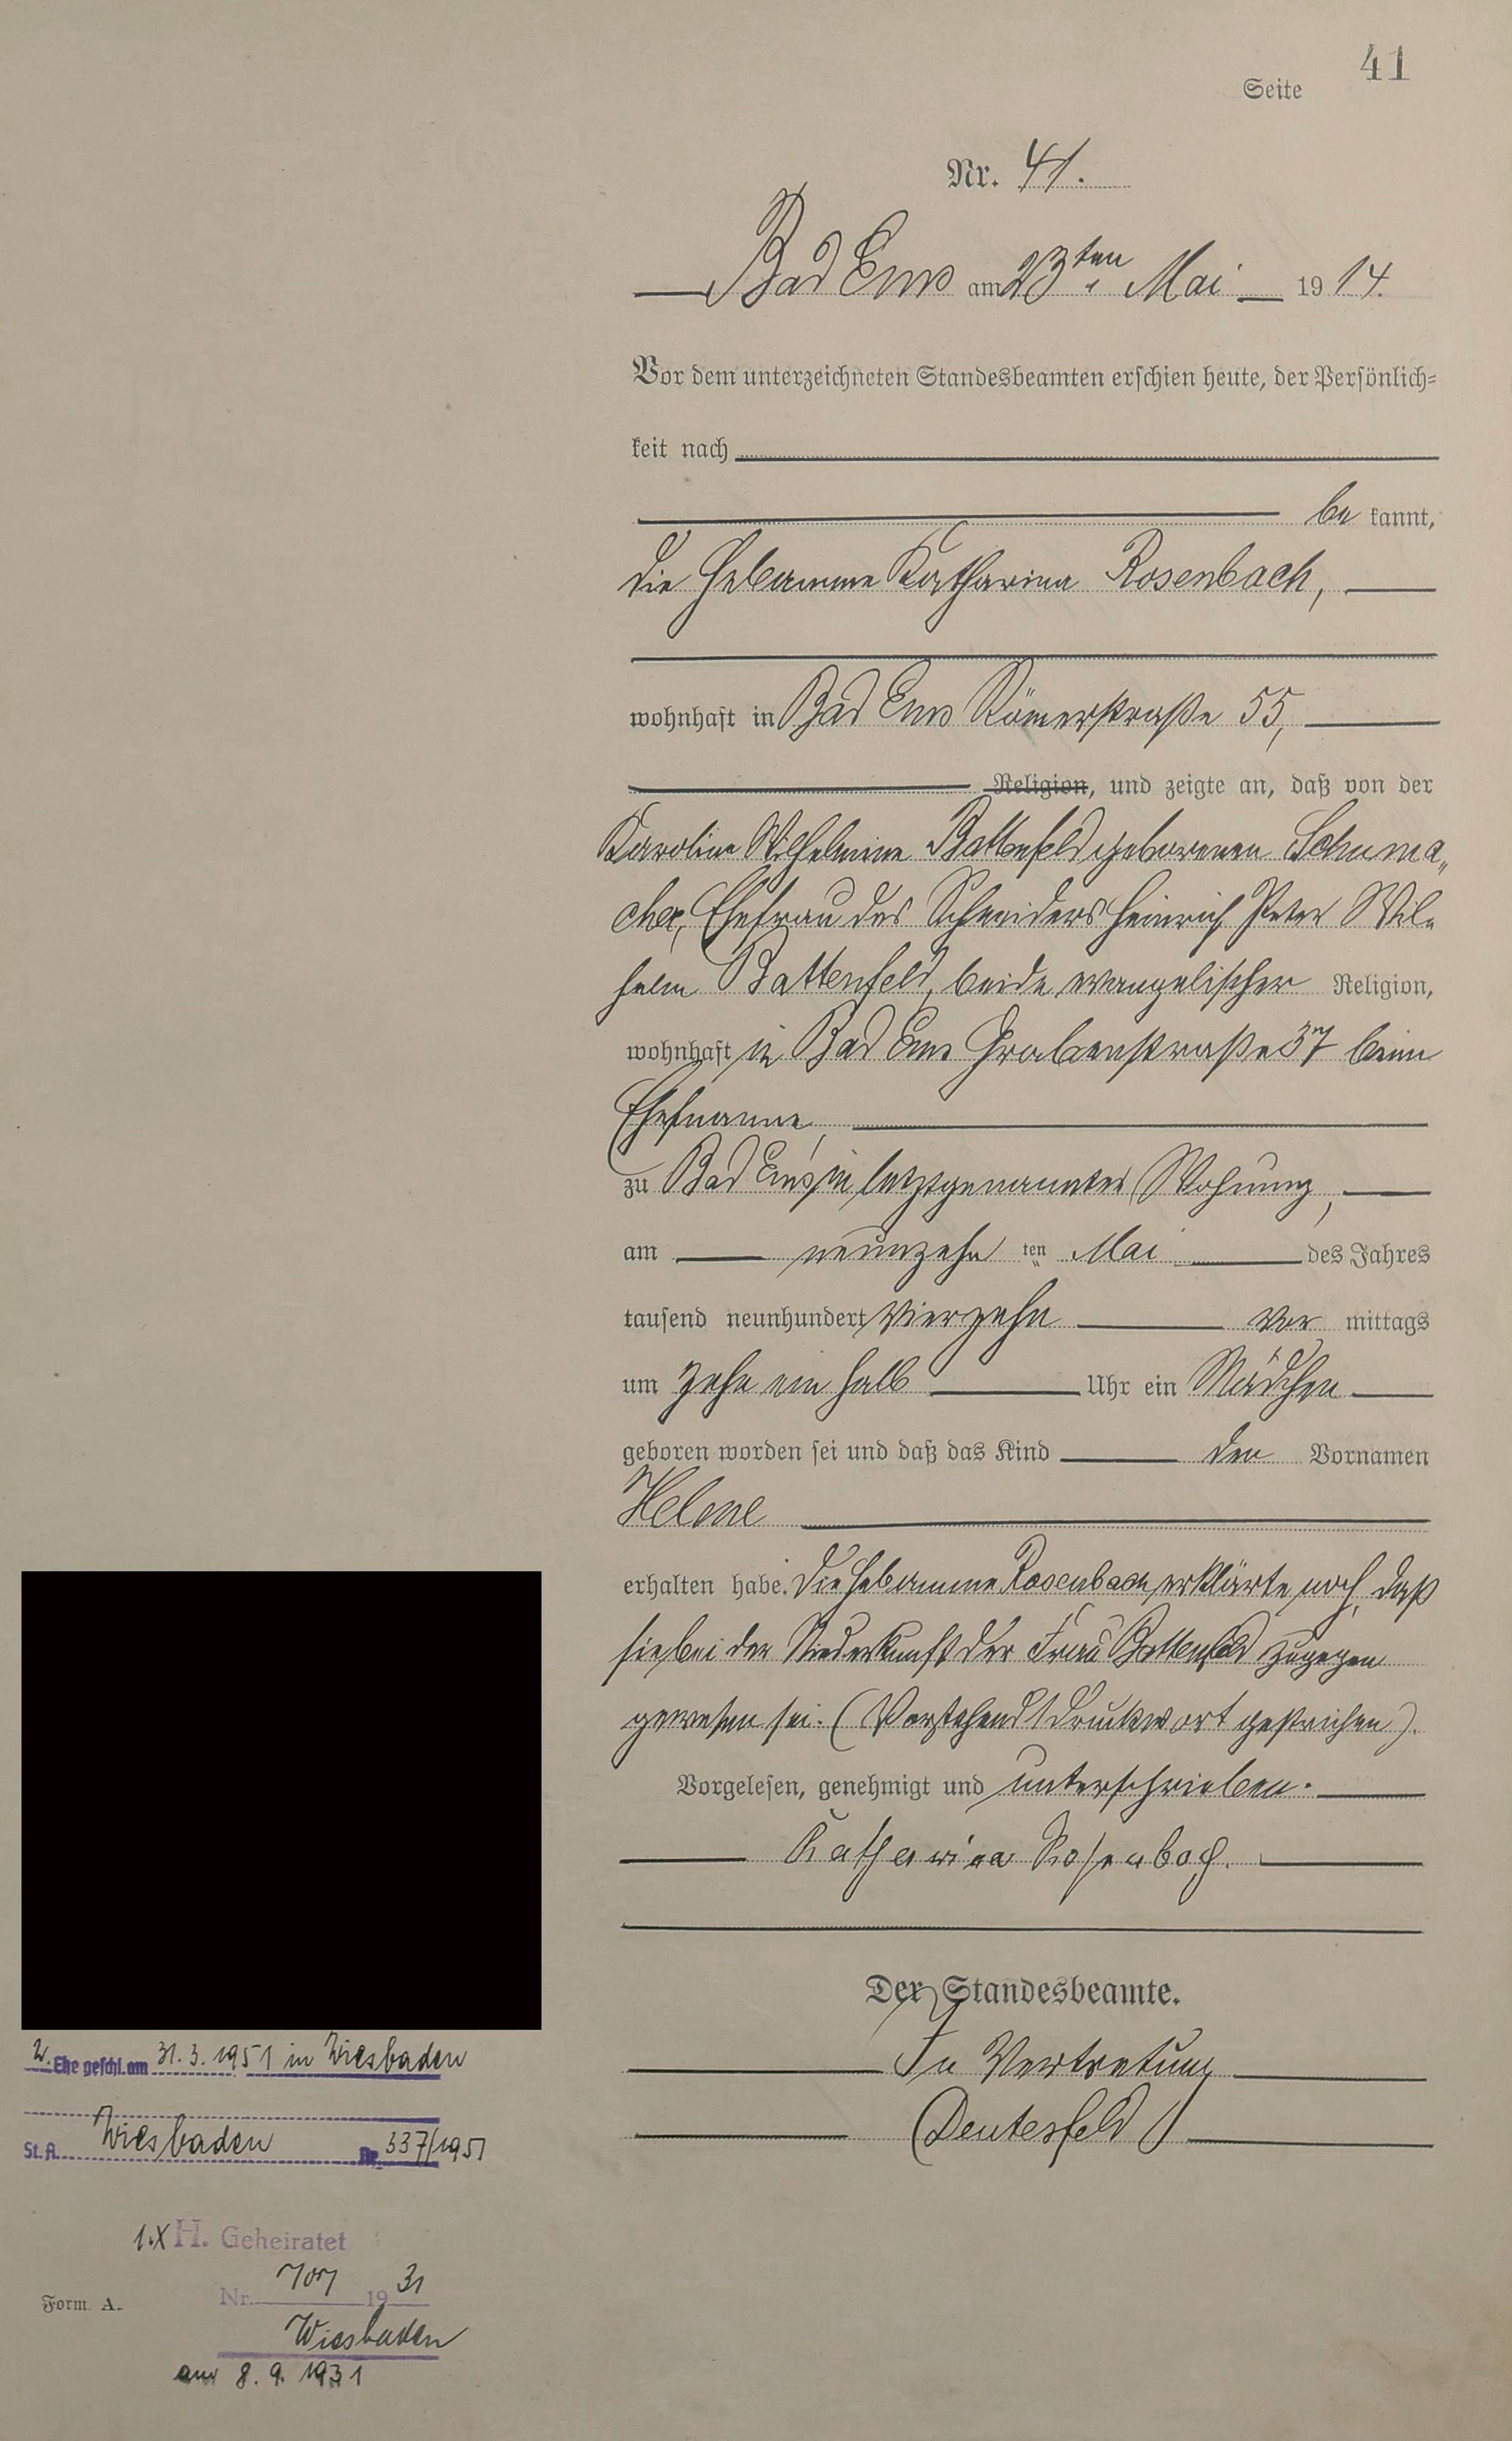 Seite 41
Nr. 41.
Bad Ems am 23ten Mai 1914.
Vor dem unterzeichneten Standesbeamten erschien heute, der Persönlich=
keit nach
be kannt,
die Hebamme Katharina Rosenbach,
wohnhaft in Bad Ems Römerstraße 55,
Religion, und zeigte an, daß von der
Karoline Wilhelmine Battenfeld geborenen Schuma„
cher, Ehefrau des Schneiders Heinrich Peter Wil„
helm Battenfeld, beide evangelischer Religion,
wohnhaft in Bad Ems Grabenstraße 37 beim
Ehemanne,
zu Bad Ems in letztgenannter Wohnung,
am neunzehn ten Mai des Jahres
tausend neunhundert vierzehn Vor mittags
um zehn ein halb Uhr ein Mädchen
geboren worden sei und daß das Kind den Vornamen
Helene
erhalten habe. Die Hebamme Rosenbach erklärte noch, daß
sie bei der Niederkunft der Frau Battenfeld zugegen
gewesen sei. (Vorstehend 1 Druckwort gestrichen).
Vorgelesen, genehmigt und unterschrieben.
Katharina Rosenbach.
Der Standesbeamte.
In Vertretung
Deutesfeld
2. Ehe geschl. am 31.3.1951 in Wiesbaden
St. A. Wiesbaden Nr. 337/1951
1.X H. Geheiratet
Nr. 707 1931
Wiesbaden
am 8.9.1931
Form. A.